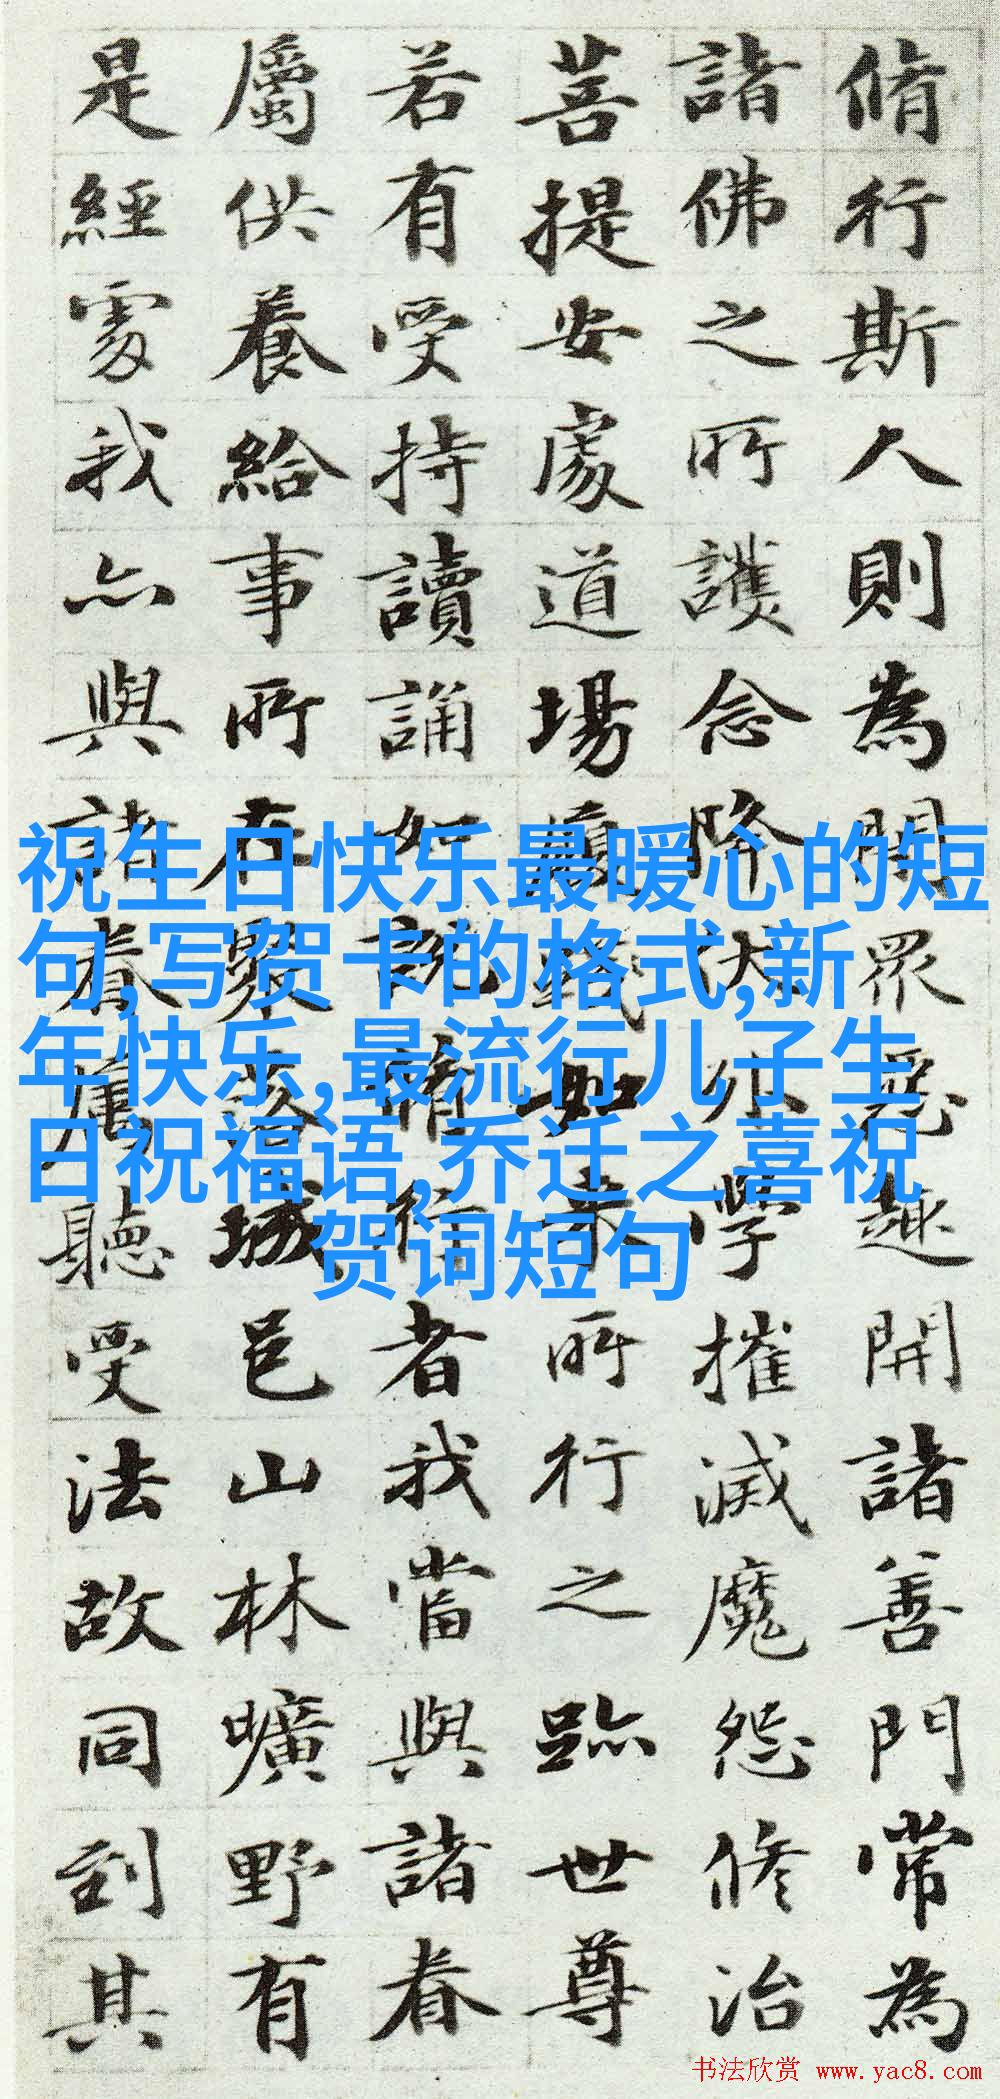 脩行斯人則為閉眾惡趣開諸善門常為
諸佛之所護念降伏外學摧滅魔怨修治
菩提安處道場履踐如來所行之跡世尊
若有受持讀誦如說脩行者我當與諸眷
屬供養給事所在聚落城邑山林曠野有
是經處我亦與諸眷屬聽受法故同到其
祝生日快乐最暖心的短
句,写贺卡的格式,新
年快乐,最流行儿子生
日祝福语,乔迁之喜祝
贺词短句
书法欣赏 www.yac8.com